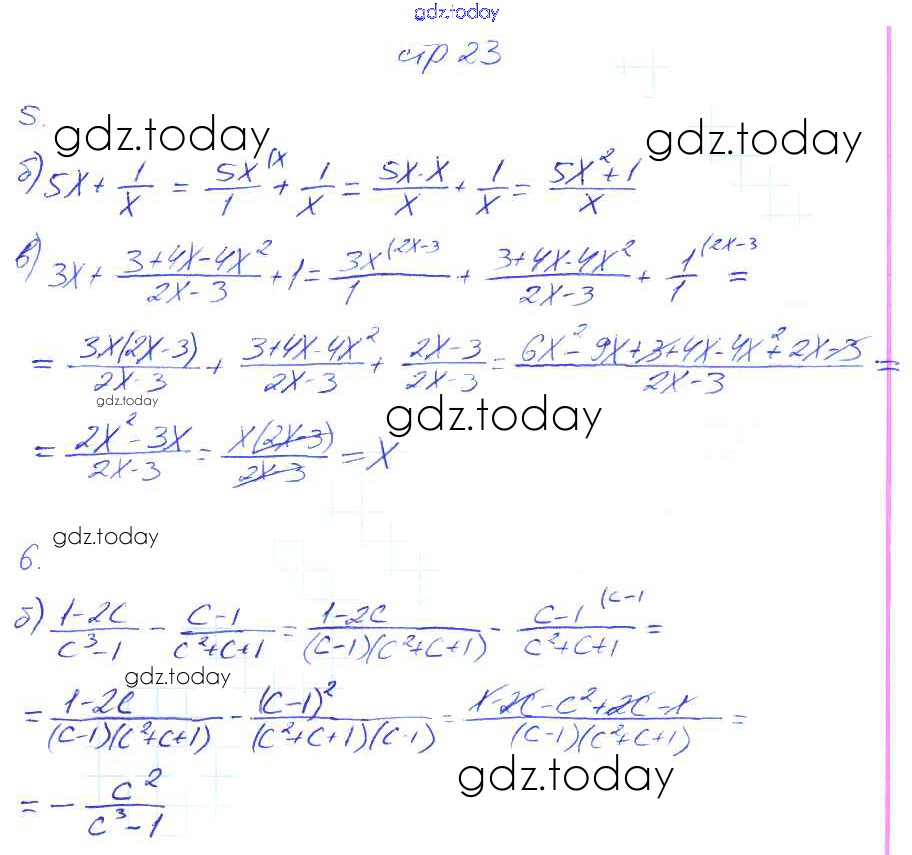 gdz.today
стр 23
5.
gdz.today
gdz.today
б) 5x + 1/x = 5x/1 (x + 1/x = 5x·x/x + 1/x = (5x²+1)/x
в) 3x + (3+4x-4x²)/(2x-3) + 1 = 3x/1 (2x-3 + (3+4x-4x²)/(2x-3) + 1/1 (2x-3 =
= 3x(2x-3)/(2x-3) + (3+4x-4x²)/(2x-3) + (2x-3)/(2x-3) = (6x²-9x+3+4x-4x²+2x-3)/(2x-3) =
gdz.today
gdz.today
= (2x²-3x)/(2x-3) = x(2x-3)/(2x-3) = x
gdz.today
6.
б) (1-2c)/(c³-1) - (c-1)/(c²+c+1) = (1-2c)/((c-1)(c²+c+1)) - (c-1)/(c²+c+1) (c-1 =
gdz.today
= (1-2c)/((c-1)(c²+c+1)) - (c-1)²/((c²+c+1)(c-1)) = (1-2c-c²+2c-1)/((c-1)(c²+c+1)) =
gdz.today
= - c²/(c³-1)